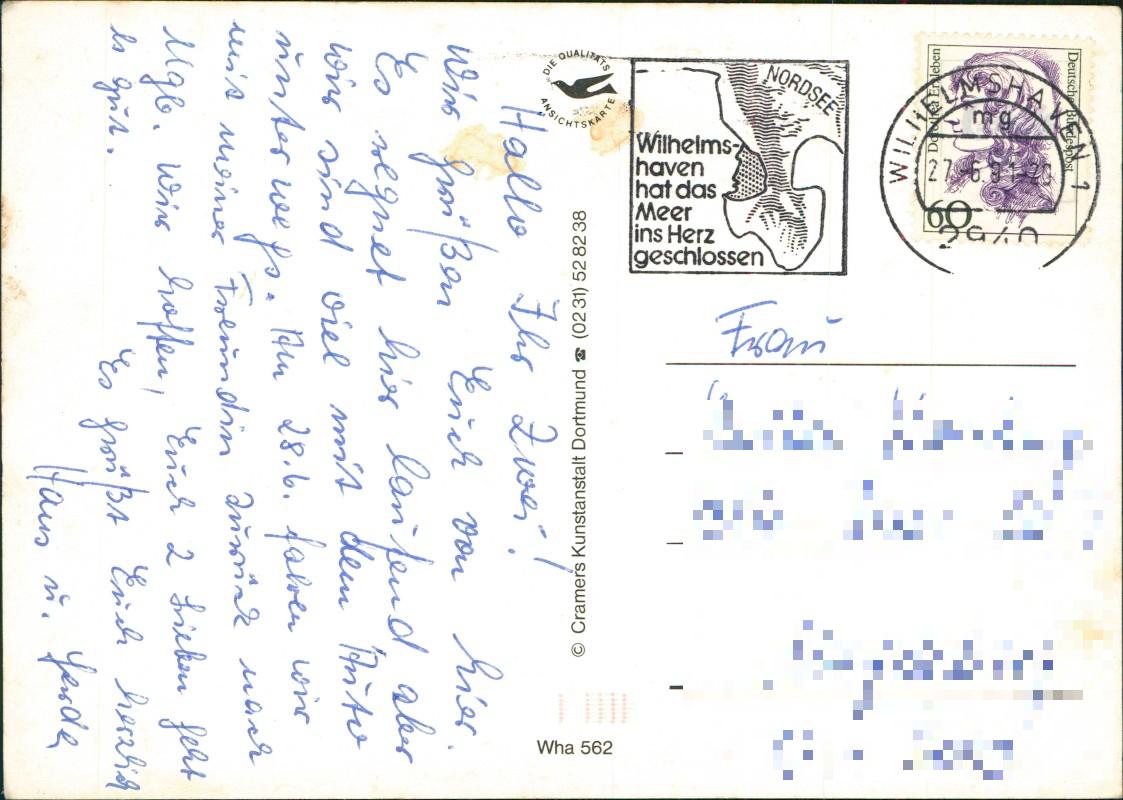 Hallo Ihr Zwei!
Wir grüßen Euch von hier.
Es regnet hier laufend aber
wir sind viel mit dem Auto
unterwegs. Am 28.6. fahren wir
mit meiner Freundin zurück nach
Mgb. Wir hoffen, Euch 2 Lieben geht
es gut.
Es grüßt Euch herzlich
Hans u. Gerda
DIE QUALITÄTS
ANSICHTSKARTE
© Cramers Kunstanstalt Dortmund ☎ (0231) 528238
Wha 562
NORDSEE
Wilhelms-
haven
hat das
Meer
ins Herz
geschlossen
WILHELMSHAVEN 1
mg
27.-6.91-20
2940
Deutsche Bundespost
60
Frau